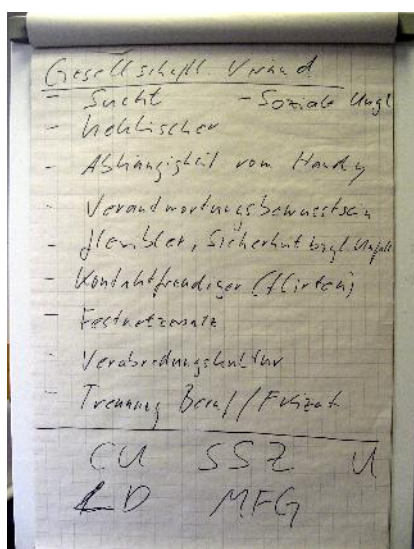 Gesellschaft
- Sucht - Soziale Ungl
- hektischer
- Abhängigkeit vom Handy
- Verantwortungsbewusstsein
- flexibler, Sicherheit bzgl. Unfall
- Kontaktfreudiger (flirten)
- Festnetzersatz
- Verabredungskultur
- Trennung Beruf / Freizeit
CU SSZ U
LD MFG